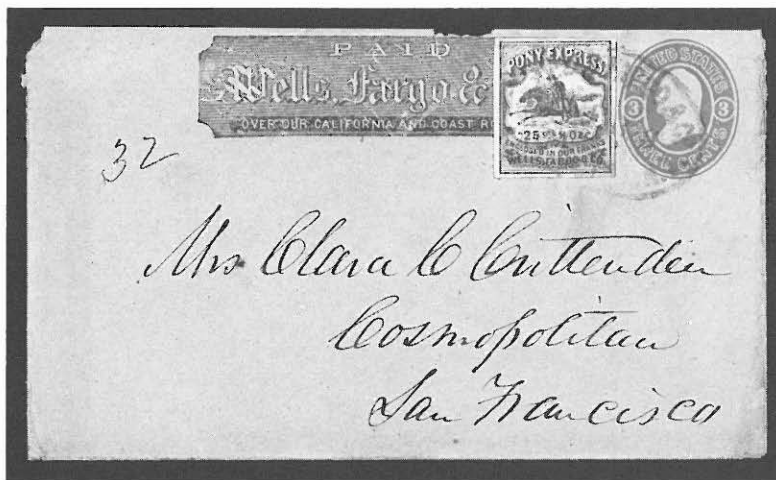 PAID
Wells, Fargo &
OVER OUR CALIFORNIA AND COAST R
PONY EXPRESS
25 ½ OZ
ENCLOSED IN OUR FRANKS
WELLS, FARGO & CO.
UNITED STATES
3 3
THREE CENTS
32
Mrs Clara C Crittenden
Cosmopolitan
San Francisco